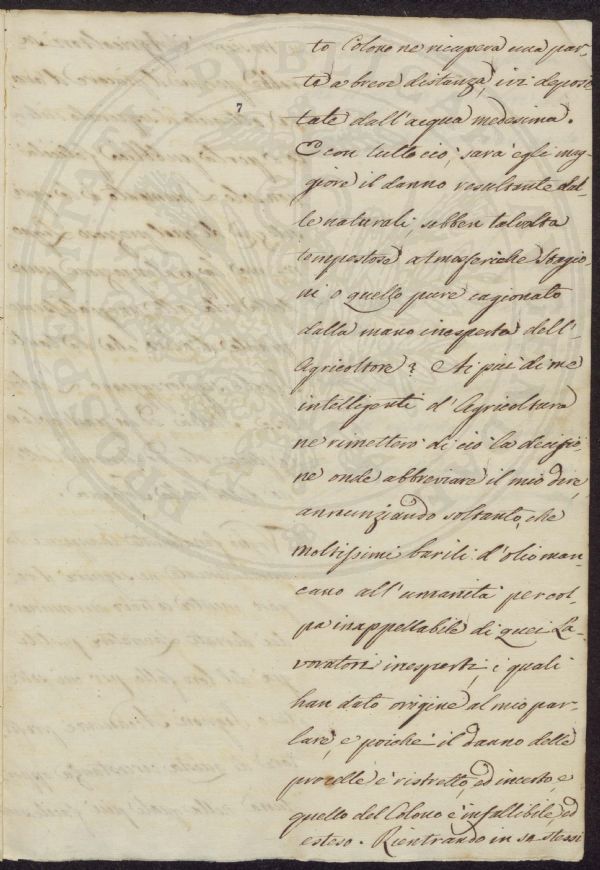 7
to Colono ne ricupera una par-
te a breve distanza, ivi deposi-
tate dall'acqua medesima.
E con tutto ciò sarà egli mag-
giore il danno resultante dal-
le naturali, sebben talvolta
tempestose atmosferiche Stagio-
ni o quello pure cagionato
dalla mano inesperta dell'
Agricoltore? Ai più di me
intelligenti d'Agricoltura
ne rimetterò di ciò la decisio-
ne onde abbreviare il mio dire,
annunziando soltanto, che
moltissimi barili d'olio man-
cano all'umanità per col-
pa inappellabile di quei La-
voratori inesperti, i quali
han dato origine al mio par-
lare, e poichè il danno delle
procelle è ristretto, ed incerto, e
quello del Colono è infallibile, ed
esteso. Rientrando in se stessi